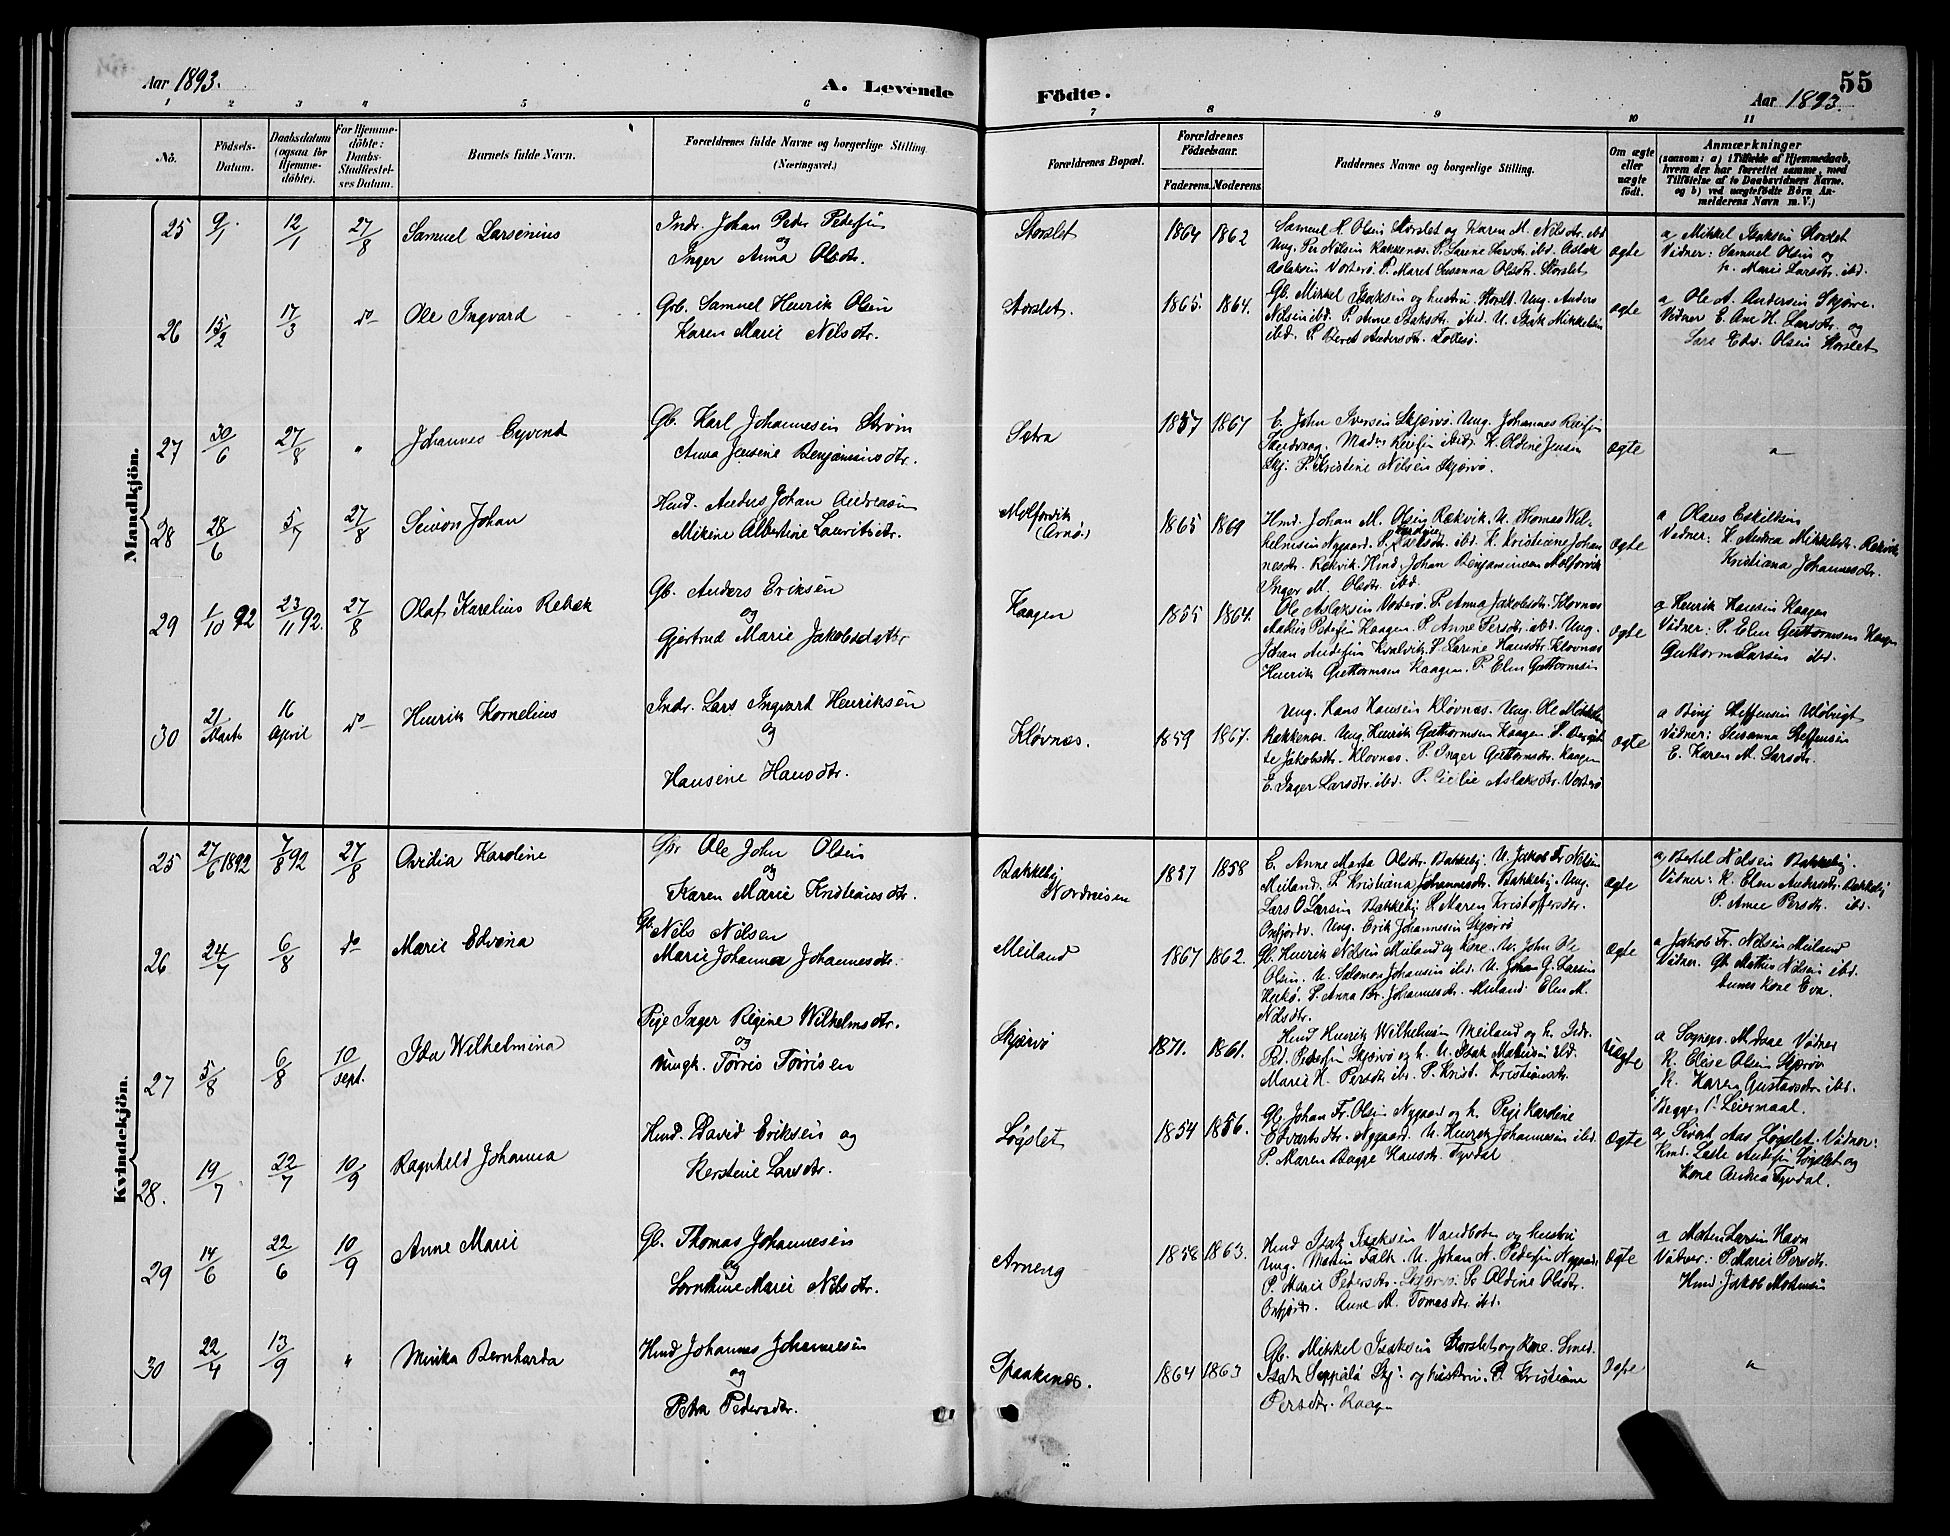 Aar 1893.
A. Levende Födte.
55
Aar 1893.
1 2 3 4 5 6 7 8 9 10 11
Nö.
Födsels-Datum.
Daabsdatum (ogsaa for Hjemme-döbte).
For Hjemme-döbte: Daabs-Stadfæstel-ses Datum.
Barnets fulde Navn.
Forældrenes fulde Navne og borgerlige Stilling (Næringsvei.)
Forældrenes Bopæl.
Forældrenes Födselsaar.
Faderens. Moderens.
Faddernes Navne og borgerlige Stilling.
Om ægte eller uægte födt.
Anmærkninger
(saasom: a) i Tilfælde af Hjemmedaab, hvem der har forrettet samme, med Tilföielse af to Daabsvidners Navne, og b) ved uægtefödte Börn An-melderens Navn m. V.)
Mandkjön.
25 9/1 12/1 27/8 Samuel Larsenius
Indr. Johan Peder Pedersen
og
Inger Anna Olsdtr.
Storslet 1864 1862
Samuel H. Olsen Storslet og Karen M. Nilsdtr. ibd
Ung. Per Nilsen Rakkenæs. P. Larine Larsdtr. ibd. Aslak
Aslaksen Vorterø P. Maret Susanna Olsdtr. Storslet
ægte
a Mikkel Isaksen Storslet
Vidner: Samuel Olsen og
h. Marie Larsdtr. ibd.
26 15/2 17/3 do Ole Ingvard
Gb. Samuel Henrik Olsen
Karen Marie Nilsdtr.
Storslet. 1865 1864.
Gb. Mikkel Isaksen og hustru Storslet. Ung. Anders
Nilsen ibd. P. Anne Isaksdtr. ibd. U. Isak Mikkelsen
ibd. P. Beret Andersdtr. Follesø.
ægte
a Ole A. Andersen Skjærvø.
Vidner E. Ane H. Larsdtr. og
Lars Edv. Olsen Storslet
27 30/6 27/8 " Johannes Eyvind
Gb. Karl Johannesen Strøm
Anna Jensine Benjaminsdtr.
Sætra 1857 1867
E. John Iversen Skjærvø. Ung. Johannes
Mads ibid. K. Oldine Jensen
Skj. P. Kristine Nilsen Skjærvø.
ægte "
28 28/6 5/7 27/8 Simon Johan
Hmd. Anders Johan Andreasen
Mikine Albertine Lauritsdtr.
Molforvik
(Arnø.) 1865 1869
Hmd. Johan M. Olsen Rækvik. U. Thomas Wil-
helmsen Nygaard. P. Larsdtr. ibd. K. Kristiane Johan
nesdtr. Rækvik. Hmd. Johan Benjaminsen Molforvik
Inger M. Olsdtr. ibd.
ægte
a Olaus Eskilsen
Vidner: K. Andrea Mikkelsdtr. Rækvik
Kristiana Johannesdtr.
29 1/10 92 23/11 92. 27/8 Olaf Karelius Rebæk
Gb. Anders Eriksen
og
Gjertrud Marie Jakobsdatter
Kaagen 1855 1864.
Ole Aslaksen Vorterø. P. Anna Jakobsdtr. Kløvnæs
Mathis Pedersen Kaagen. P. Anne Persdtr. ibd. Ung.
Johan Andersen Kvalvik. P. Larine Hansdtr. Kløvnæs
Henrik Guttormsen Kaagen. P. Elen Guttormsen
ægte
a Henrik Hansen Kaagen
Vidner: P. Elen Guttormsen Kaagen
Guttorm Larsen ibd.
30 21 Marts 16 April do Henrik Kornelius
Indr. Lars Ingvard Henriksen
og
Hansine Hansdtr.
Kløvnæs. 1859 1867.
Ung. Hans Hansen Kløvnæs. Ung. Ole Mikkelsen
Rakkenæs. Ung. Henrik Guttormsen Kaagen P. Bergit-
te Jakobsdtr. Kløvnæs. P. Inger Guttormsdtr. Kaagen
E. Inger Larsdtr. ibd. P. Cicilie Aslaksdtr. Vorterø
ægte
a Benj Steffensen Uløbugt
Vidner: Susanna Steffensen
E. Karen M. Larsdtr.
Kvindekjön.
25 27/6 1892 7/8 92 27/8 Ovidia Karoline
Gbr Ole John Olsen
og
Karen Marie Kristiansdtr.
Bakkeby
Nordreisen 1857 1858
E. Anne Marta Olsdtr. Bakkeby. U. Jakob Fr. Nilsen
Meiland. P. Kristiana Johannesdtr. Bakkeby. Ung.
Lars O Larsen Bakkeby. P. Maren Kristoffersdtr.
Oxfjord. Ung. Erik Johannesen Skjærvø
ægte
a Bertel Nilsen Bakkeby.
Vidner: K. Elen Andersdtr. Bakkeby
P. Anne Persdtr. ibd.
26 24/7 6/8 do Marie Edvina
Gb. Nils Nilsen
Marie Johanna Johannesdtr.
Meiland 1867 1862.
Gb. Henrik Nilsen Meiland og Kone. U. John Ole
Olsen. U. Salomon Johansen ibd. U. Johan G. Larsen
P. Anna Br. Johannesdtr. Meiland. Elen M.
Nilsdtr.
ægte
a Jakob Fr. Nilsen Meiland
Vidner. Gb. Mathis Nilsen ibd.
dennes Kone Eva.
27 5/8 6/8 10/sept. Ida Wilhelmina
Pige Inger Regine Wilhelmsdtr.
og
Ungk. Tørris Tørrisen
Skjærvø 1871. 1861.
Hmd Henrik Wilhelmsen Meiland og h. Indr.
Pd. Pedersen Skjærvø og h. U. Isak Mathisen ibd.
Marie H. Persdtr. ibd. P. Krist. Kristiansdtr.
Uægte
a Sognepr. Vidner
K. Elise Olsen Skjærvø
K. Karen Gustavsdtr. ibd.
Begges 1' Leiermaal.
28. 19/7 22/7 10/9 Ragnhild Johanna
Hmd. David Eriksen og
Kerstine Larsdtr.
Løgslet 1854 1856.
Gb. Johan Fr. Olsen Nygaard og h. Pige Karoline
Edvartsdtr. Nygaard. U. Henrik Johannesen ibd.
P. Maren Bagge Hansdtr. Tyvdal
ægte
a Sivert Aas Løgslet. Vidner:
Hmd. Lasse Andersen Løgslet og
Kone Andrea Tyvdal.
29 14/6 22/6 10/9 Anne Marie
Gb. Thomas Johannesen
og
Sørnthine Marie Nilsdtr.
Arneng 1858 1863.
Hmd Isak Isaksen Vandboten og hustru
Ung. Mathis Falk. U. Johan N. Pedersen Nygaard
P. Marie Pedersdtr. Skjærvø. P. Aldine Olsdtr.
Oxfjord. Anne M. Tomasdtr. ibd.
ægte
a Morten Larsen Havn
Vidner: P. Marie Persdtr.
Hmd. Jakob Mortensen
30 22/4 13/9 " Minka Bernharda
Hmd Johannes Johannesen
og
Petra Pedersdtr.
Spaakenæs. 1864 1863
Gb. Mikkel Isaksen Storslet og Kone. Smed.
Isak Seppälä Skj. og hustru. P. Kristiane
Persdtr. Kaagen
ægte "